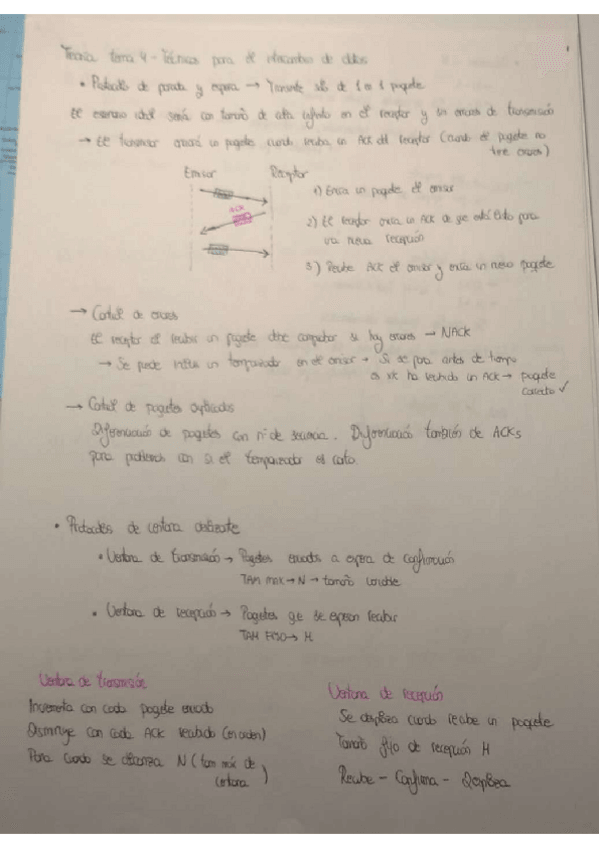 Teoría tema 4 - Técnicas para el intercambio de datos
• Protocolo de parada y espera → Transmite sólo de 1 en 1 paquete
El escenario ideal sería con tamaño de cola infinito en el receptor y sin errores de transmisión
→ El transmisor enviará un paquete cuando reciba un Ack del receptor (cuando el paquete no
tiene errores)
Emisor Receptor
ACK
1) Envía un paquete el emisor
2) El receptor envía un Ack de que está listo para
una nueva recepción
3) Recibe ACK el emisor y envía un nuevo paquete
→ Control de errores
El receptor al recibir un paquete debe comprobar si hay errores → NACK
→ Se puede incluir un temporizador en el emisor → Si se para antes de tiempo
es xk ha recibido un ACK → paquete
correcto ✓
→ Control de paquetes duplicados
Diferenciación de paquetes con nº de secuencia. Diferenciación también de ACKs
para problemas con si el temporizador es corto.
• Protocolos de ventana deslizante
• Ventana de transmisión → Paquetes enviados a espera de confirmación
TAM MAX → N → tamaño variable
• Ventana de recepción → Paquetes que se esperan recibir
TAM FIJO → H
Ventana de transmisión
Incrementa con cada paquete enviado
Disminuye con cada ACK recibido (en orden)
Para cuando se alcanza N (tam máx de
ventana)
Ventana de recepción
Se desplaza cuando recibe un paquete
Tamaño fijo de recepción H
Recibe - Confirma - Desplaza